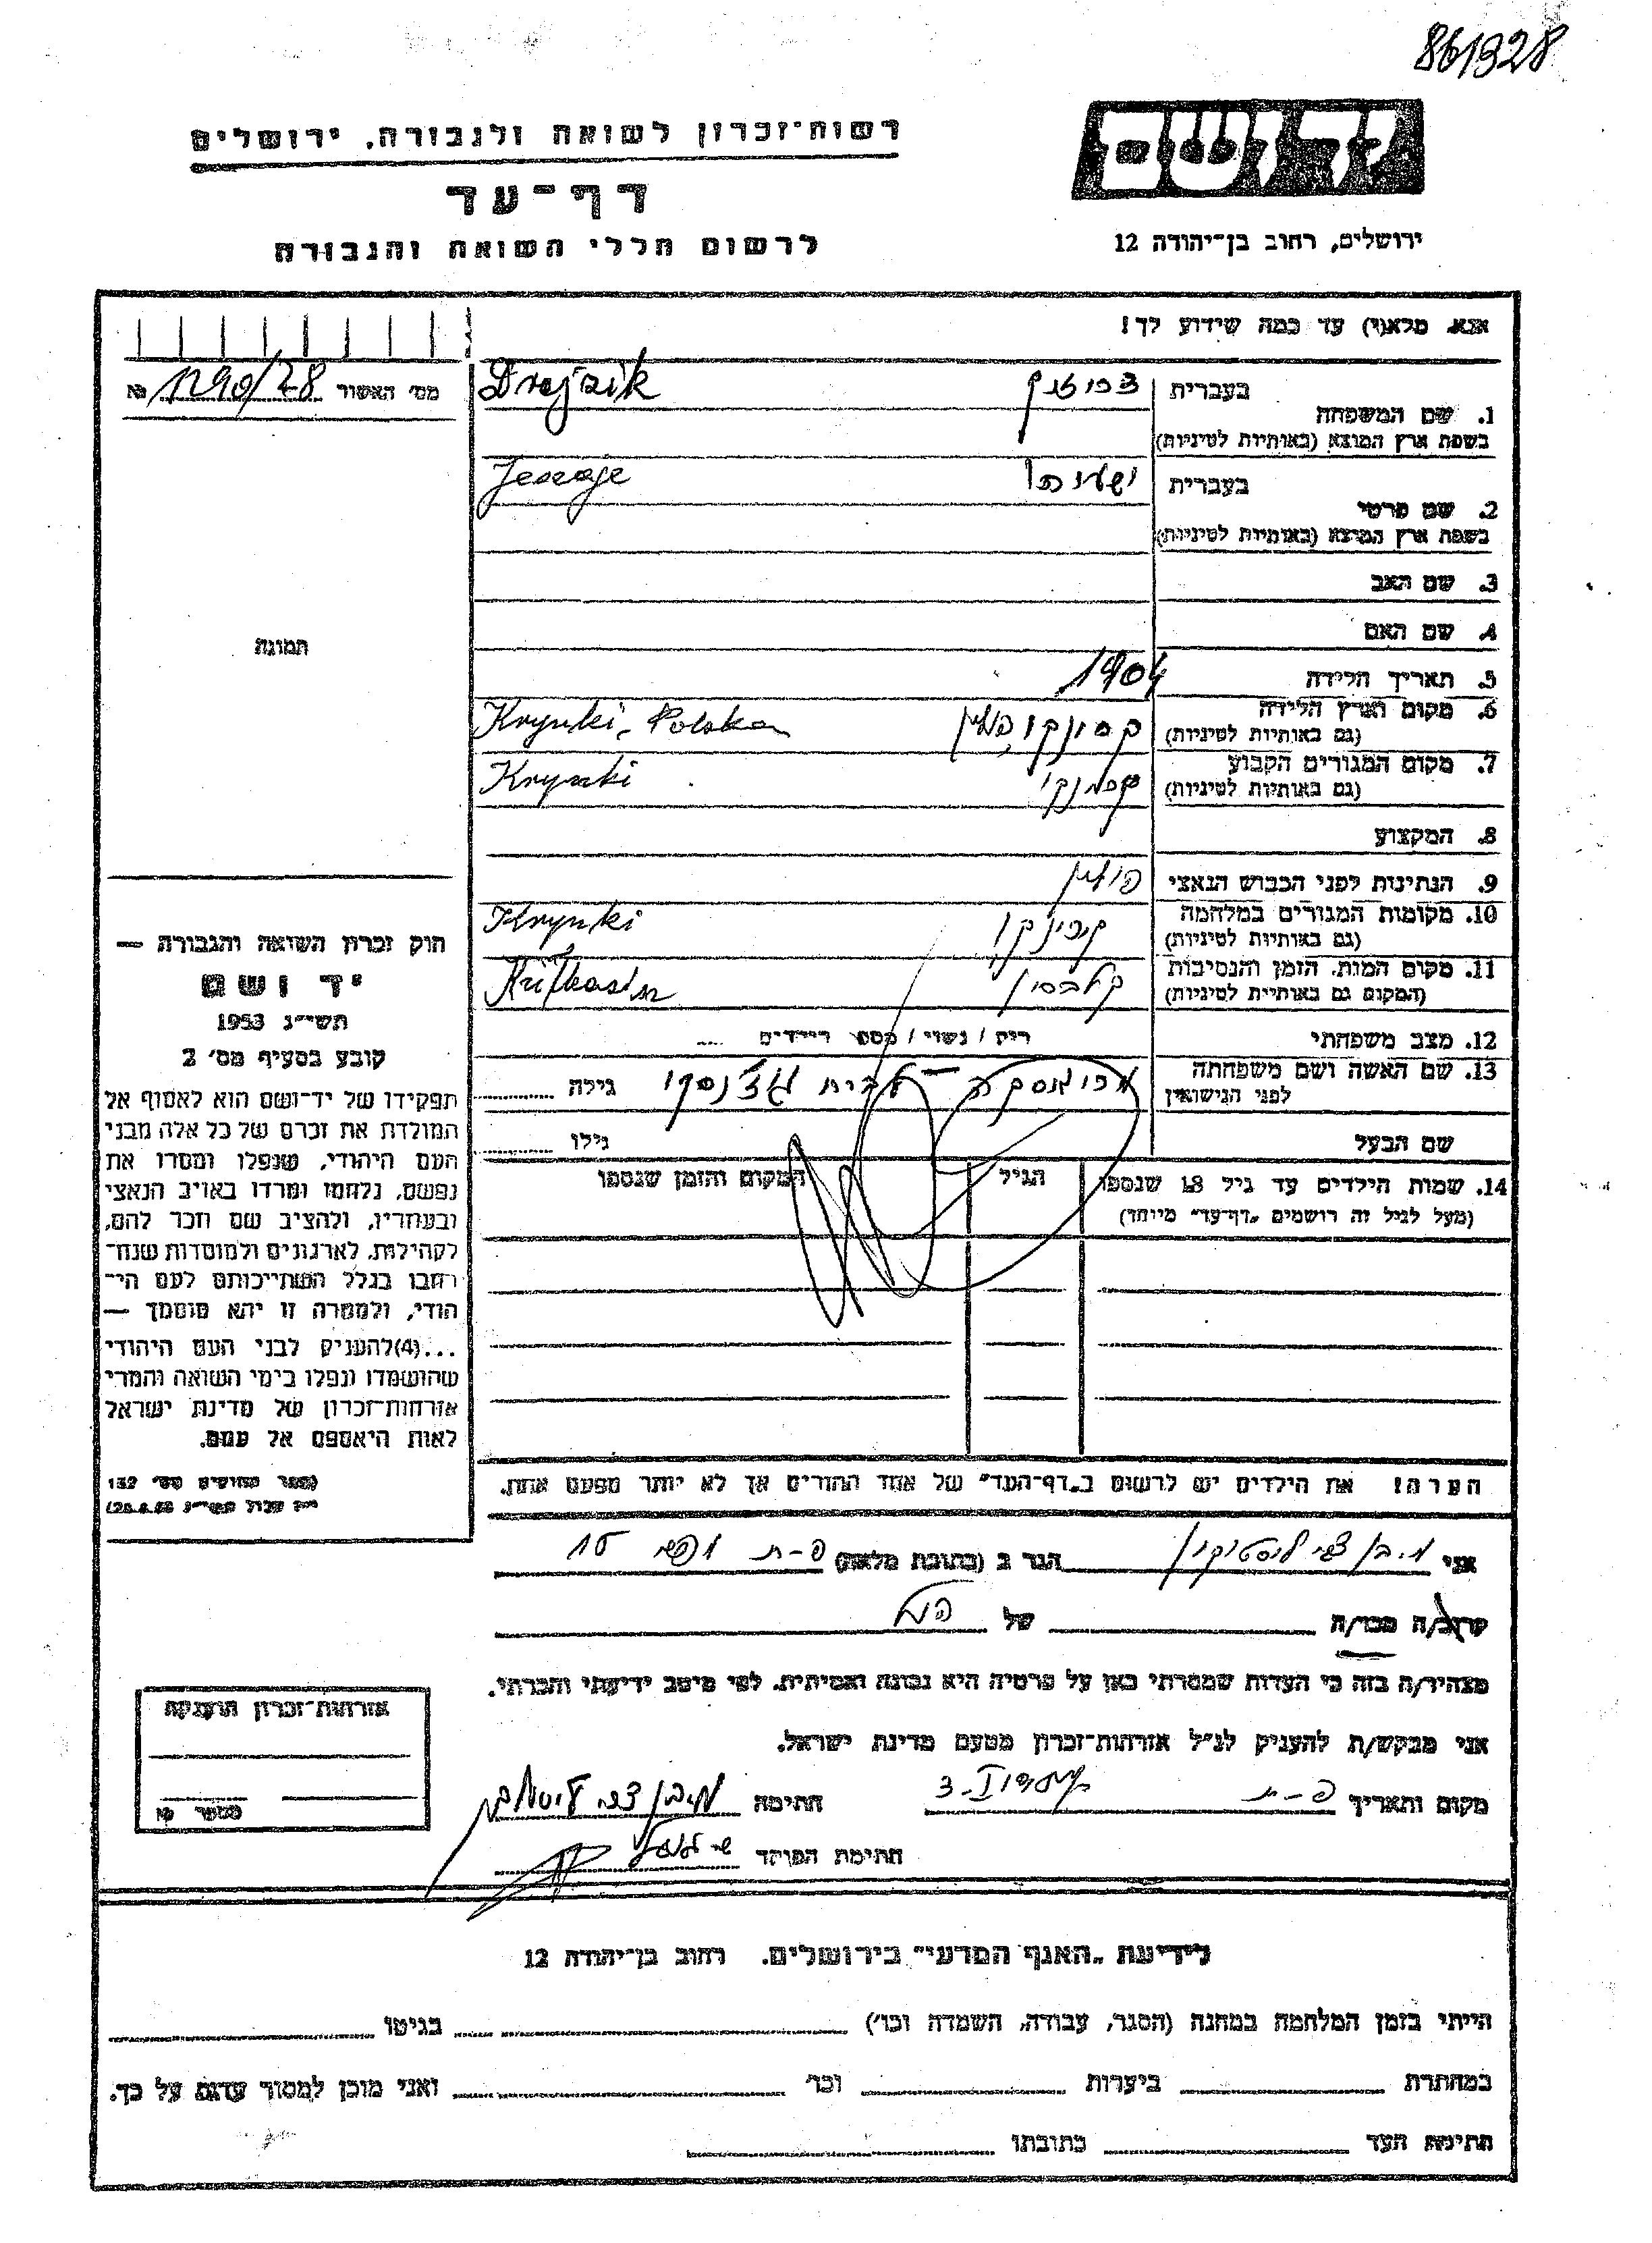 861328
רשות־זכרון לשואה ולגבורה, ירושלים
דף־עד
לרשום חללי השואה והגבורה
יד ושם
ירושלים, רחוב בן־יהודה 12
אנא, מלא(י) עד כמה שידוע לך!
מס׳ האשור 1290/28 №
1. שם המשפחה
בעברית
בשפת ארץ המוצא (באותיות לטיניות)
Drejzik
2. שם פרטי
בעברית ישעיהו
בשפת ארץ המוצא (באותיות לטיניות)
Jesaje
3. שם האב
4. שם האם
5. תאריך הלידה 1904
6. מקום וארץ הלידה
(גם באותיות לטיניות)
פולין Krynki, Polska
7. מקום המגורים הקבוע
(גם באותיות לטיניות)
קרינקי Krynki
8. המקצוע
9. הנתינות לפני הכבוש הנאצי פולין
10. מקומות המגורים במלחמה
(גם באותיות לטיניות)
קרינקי Krynki
11. מקום המות, הזמן והנסיבות
(המקום גם באותיות לטיניות)
קלבסין
12. מצב משפחתי רווק / נשוי / מספר הילדים
13. שם האשה ושם משפחתה
לפני הנישואין
לבית גילה
שם הבעל גילו
14. שמות הילדים עד גיל 18 שנספו
(מעל לגיל זה רושמים „דף־עד״ מיוחד)
הגיל
המקום והזמן שנספו
הערה! את הילדים יש לרשום ב„דף־העד״ של אחד ההורים אך לא יותר מפעם אחת.
תמונה
חוק זכרון השואה והגבורה —
יד ושם
תשי״ג 1953
קובע בסעיף מס׳ 2
תפקידו של יד־ושם הוא לאסוף אל
המולדת את זכרם של כל אלה מבני
העם היהודי, שנפלו ומסרו את
נפשם, נלחמו ומרדו באויב הנאצי
ובעוזריו, ולהציב שם וזכר להם,
לקהילות, לארגונים ולמוסדות שנח־
רבו בגלל השתייכותם לעם הי־
הודי, ולמטרה זו יהא מוסמך —
...(4)להעניק לבני העם היהודי
שהושמדו ונפלו בימי השואה והמרי
אזרחות־זכרון של מדינת ישראל
לאות היאספם אל עמם.
(ספר החוקים מס׳ 132
אני הגר ב (כתובת מלאה) פ-ת 15
קרוב/ה מכר/ה של
מצהיר/ה בזה כי העדות שמסרתי כאן על פרטיה היא נכונה ואמיתית, לפי מיטב ידיעתי והכרתי.
אני מבקש/ת להעניק לנ״ל אזרחות־זכרון מטעם מדינת ישראל.
מקום ותאריך פ-ת חתימה
חתימת הפוקד
אזרחות־זכרון הוענקה
מספר №
לידיעת „האגף המדעי״ בירושלים. רחוב בן־יהודה 12
הייתי בזמן המלחמה במחנה (הסגר, עבודה, השמדה וכו׳) בגיטו
במחתרת ביערות וכו׳ ואני מוכן למסור עדות על כך.
חתימת העד כתובתו